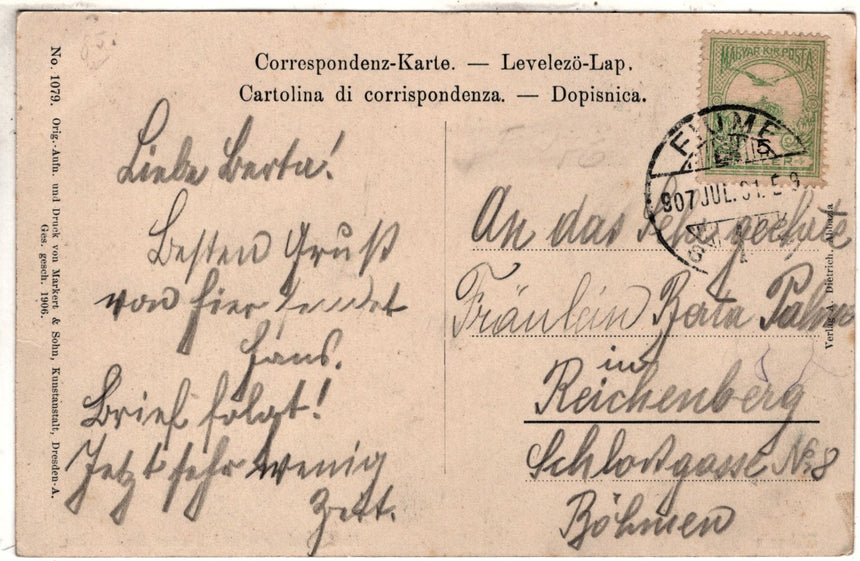 Correspondenz-Karte. — Levelezö-Lap.
Cartolina di corrispondenza. — Dopisnica.
MAGYAR KIR. POSTA
FIUME
907 JUL. 31. 5
No. 1079. Orig.-Aufn. und Druck von Markert & Sohn, Kunstanstalt, Dresden-A.
Ges. gesch. 1906.
Liebe Berta!
Besten Gruß
von hier sendet
Hans.
Brief folgt!
Jetzt sehr wenig
Zeit.
An das sehr geehrte
Fräulein Berta Palme
in
Reichenberg
Schloßgasse No. 8
Böhmen
Verlag A. Dietrich, Abbazia